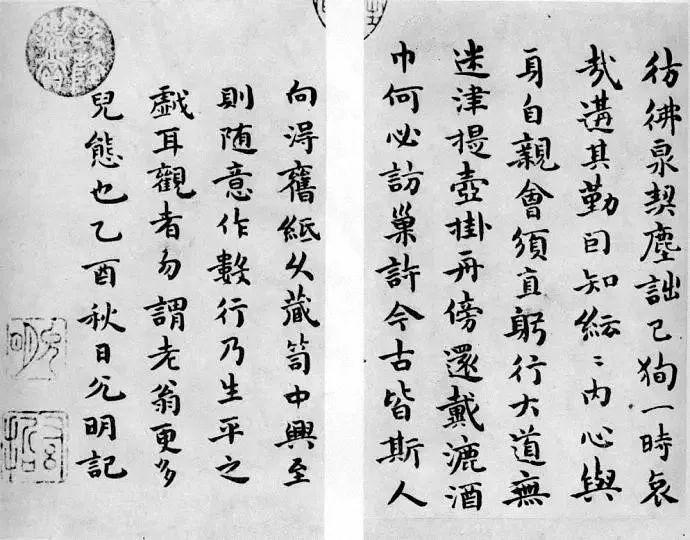 彷彿泉契塵詘己狥一時哀
哉遘其勤囙知紜〻内心與
身自親會須直躬行大道無
迷津提壺掛舟傍還戴漉酒
巾何必訪巢許今古皆斯人
向淂舊紙久藏笥中興至
則随意作數行乃生平之
戯耳觀者勿謂老翁更多
兒態也乙酉秋日允明記
允明